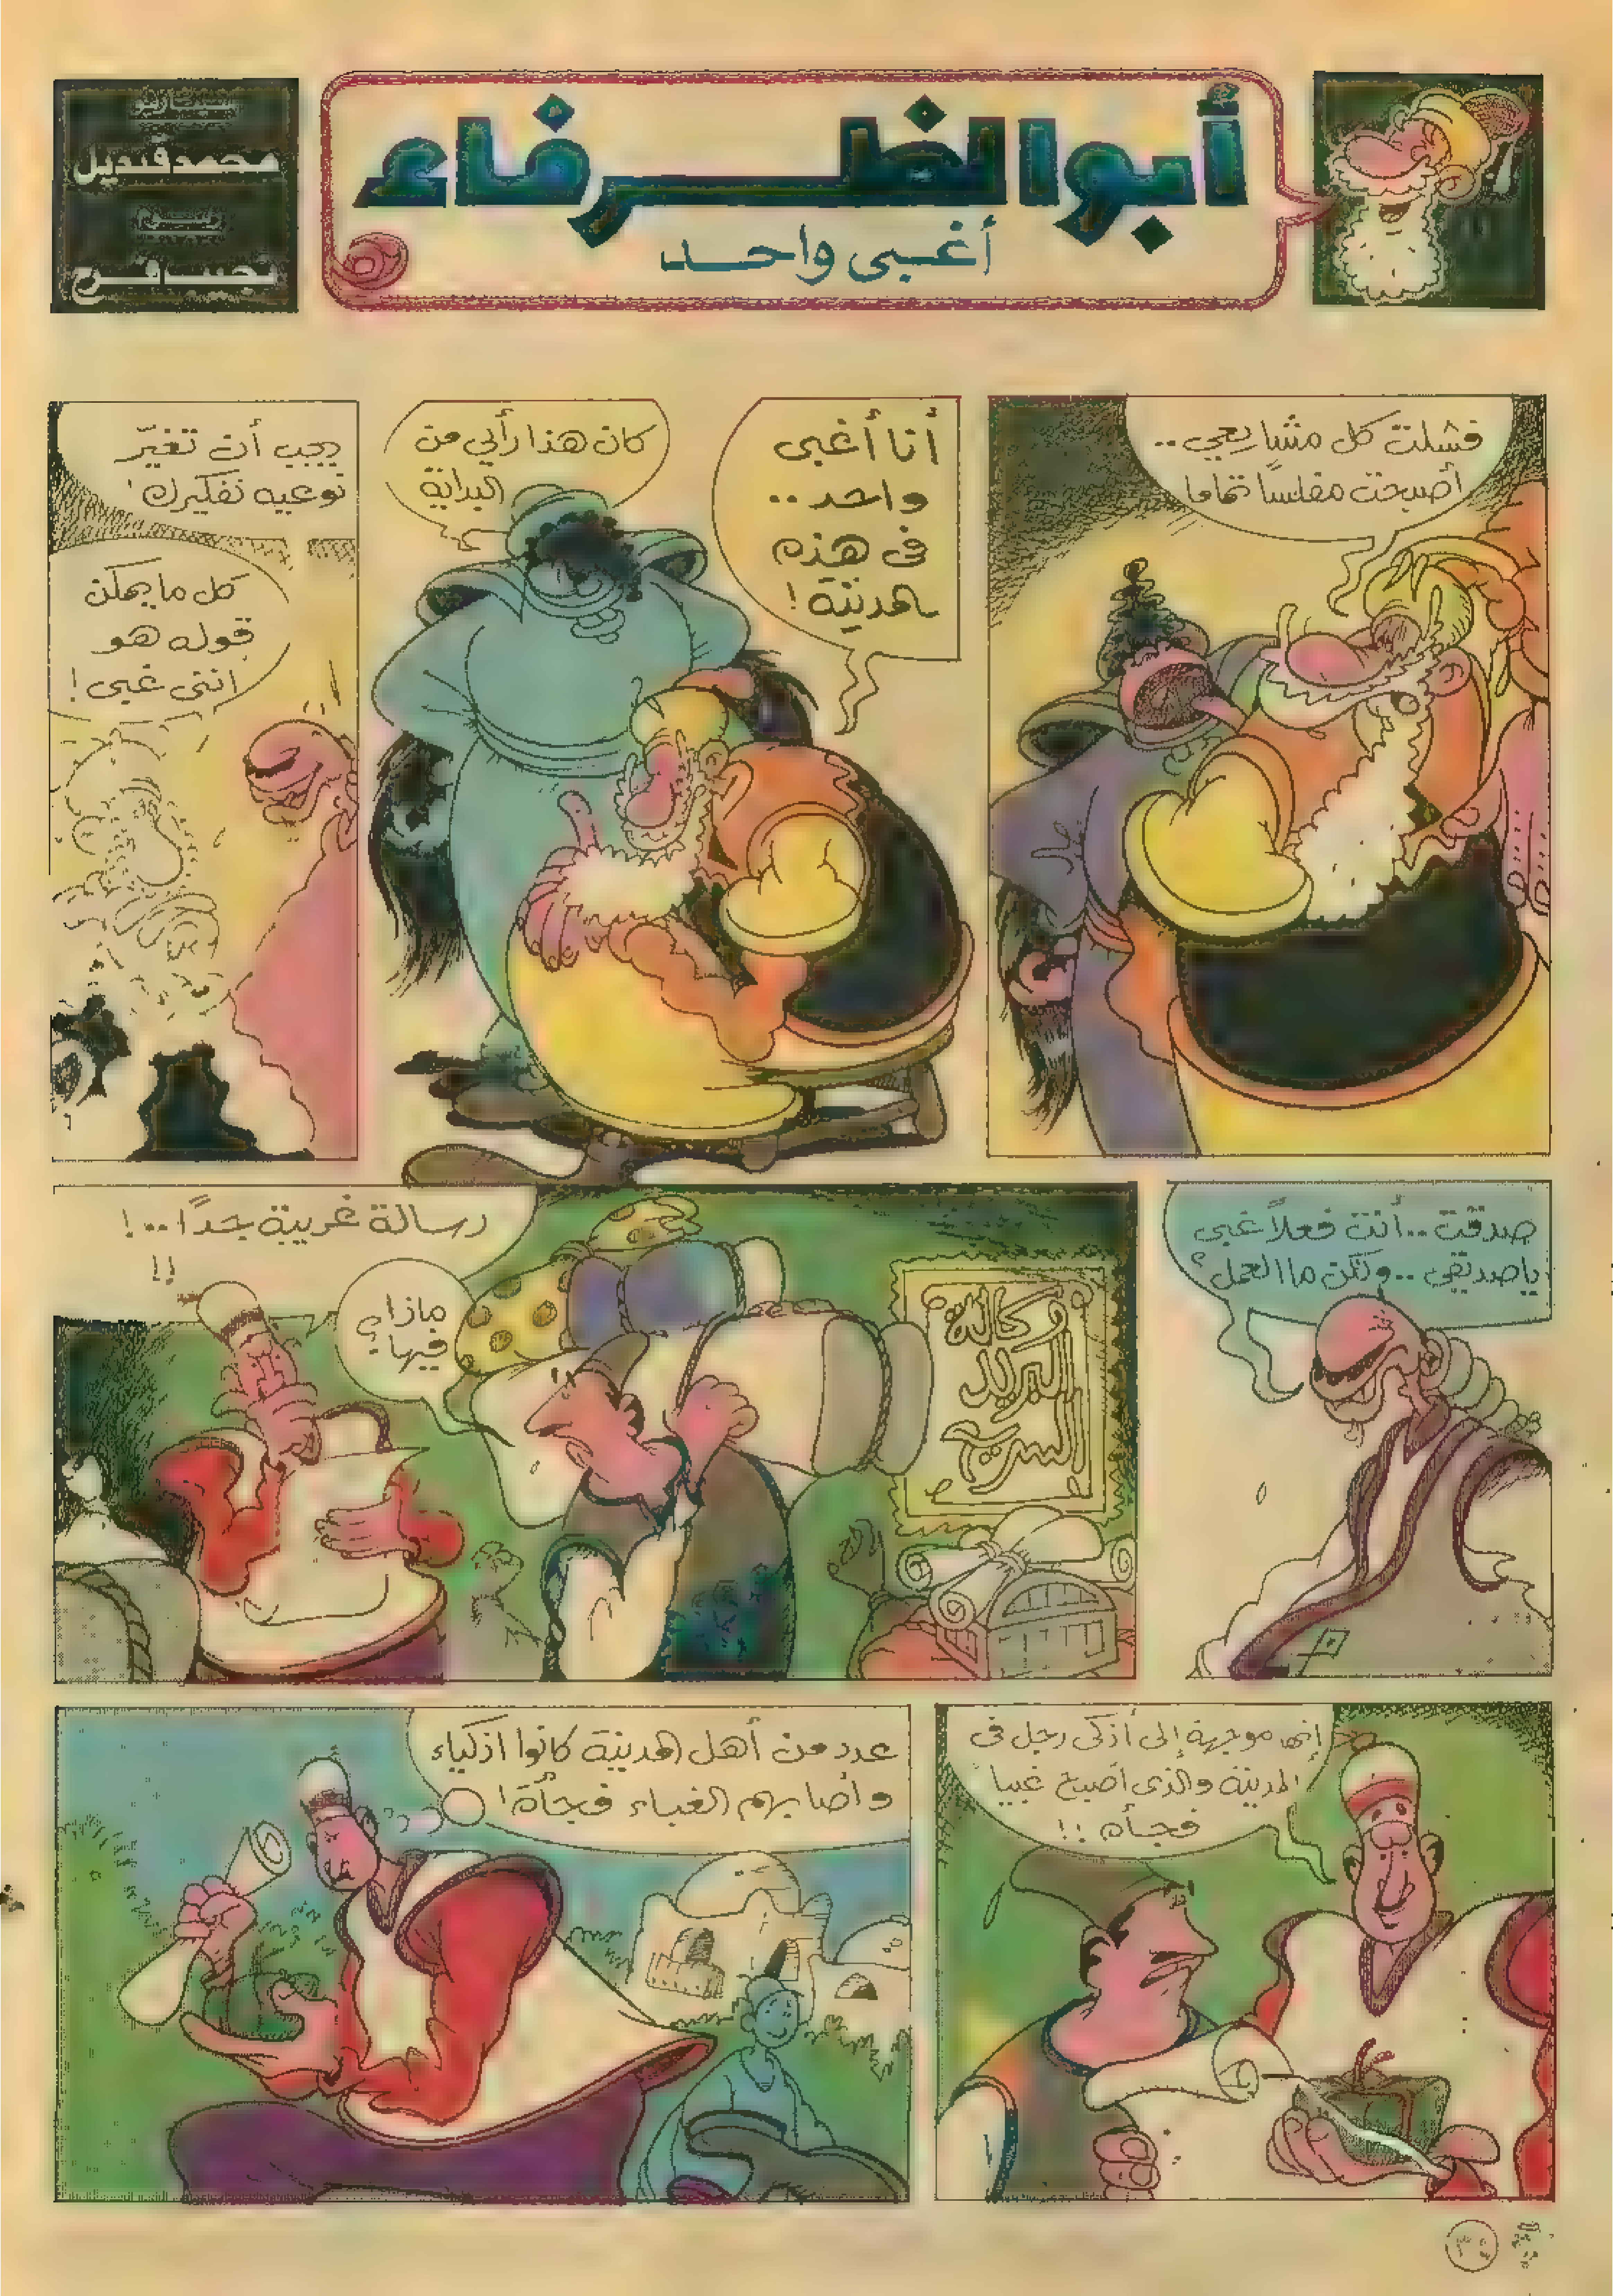 أبو الظرفاء
أغبى واحد
سيناريو
محمد قنديل
رسوم
نجيب فرح
فشلت كل مشاريعي ..
أصبحت مفلساً تماما
أنا أغبى
واحد ..
في هذه
المدينة !
كان هذا رأيي من
البداية
يجب أن تغيّر
نوعيه تفكيرك !
كل ما يمكن
قوله هو
إنني غبي !
صدقت .. أنت فعلاً غبي
يا صديقي .. ولكن ما العمل ؟
رسالة غريبة جداً .. !
!!
ماذا
فيها ؟
وكالة
البريد
السريع
إنها موجهة إلى أذكى رجل في
المدينة والذي أصبح غبيا
فجأه !!
عدد من أهل المدينة كانوا اذكياء
وأصابهم الغباء فجأة !
٣٤